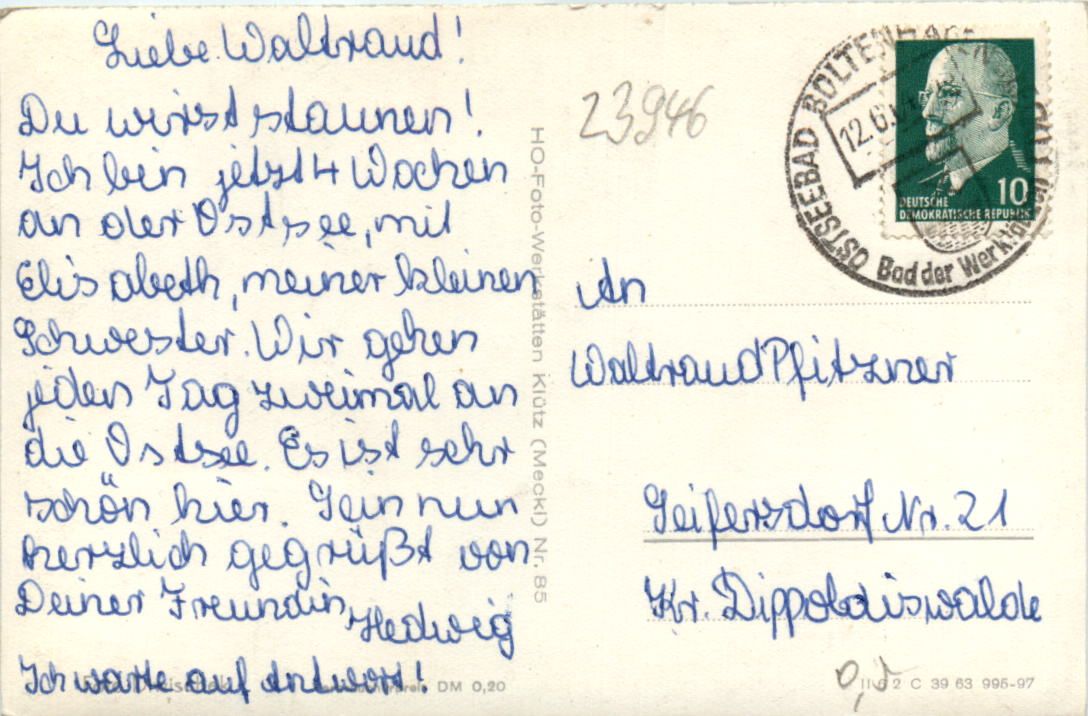 Liebe Waltraud!
Du wirst staunen!
Ich bin jetzt 4 Wochen
an der Ostsee, mit
Elisabeth, meiner kleinen
Schwester. Wir gehen
jeden Tag zweimal an
die Ostsee. Es ist sehr
schön hier. Sein nun
herzlich gegrüßt von
Deiner Freundin
Hedwig
Ich warte auf Antwort!
DM 0,20
HO-Foto-Werkstätten Klütz (Meckl) Nr. 85
23946
OSTSEEBAD BOLTENHAGEN
12.6.
Bad der Werktätigen
10
DEUTSCHE
DEMOKRATISCHE REPUBLIK
An
Waltraud Pfitzner
Seifersdorf Nr. 21
Kr. Dippoldiswalde
II 6 2 C 39 63 995-97